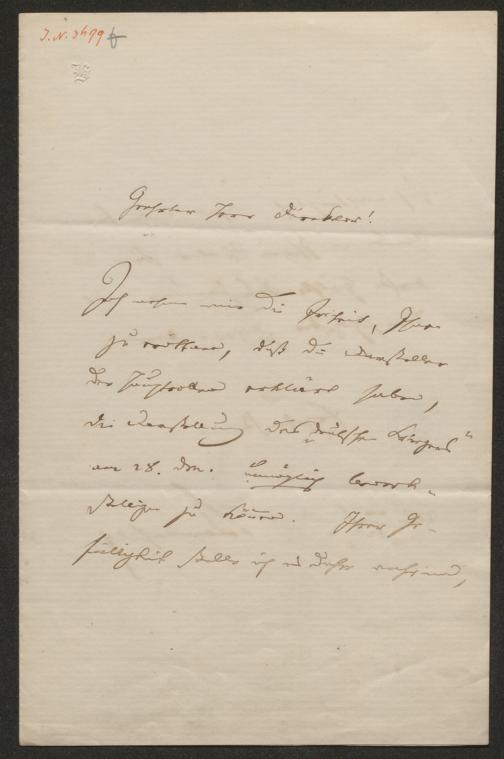 J.N. 3699
Geehrter Herr Direktor!
Ich nehme mir die Freiheit, Ihnen
zu melden, daß die Darsteller
der Hauptrollen erklärt haben,
die Darstellung des „deutschen
am 28. dM. unmöglich bewerk-
stelligen zu können. Ihrer Ge-
fälligkeit stelle ich es daher anheim,